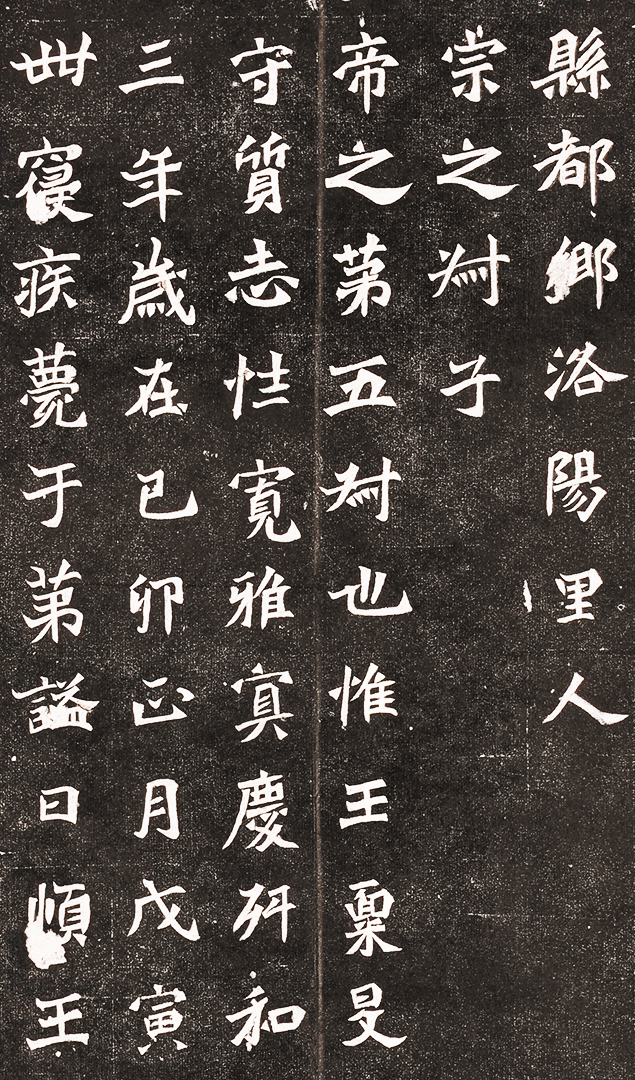 縣都鄉洛陽里人
宗之叔子
帝之第五叔也惟王稟旻
守質志性寬雅冥慶舛和
三年歲在己卯正月戊寅
卌寢疾薨于第謚曰順王